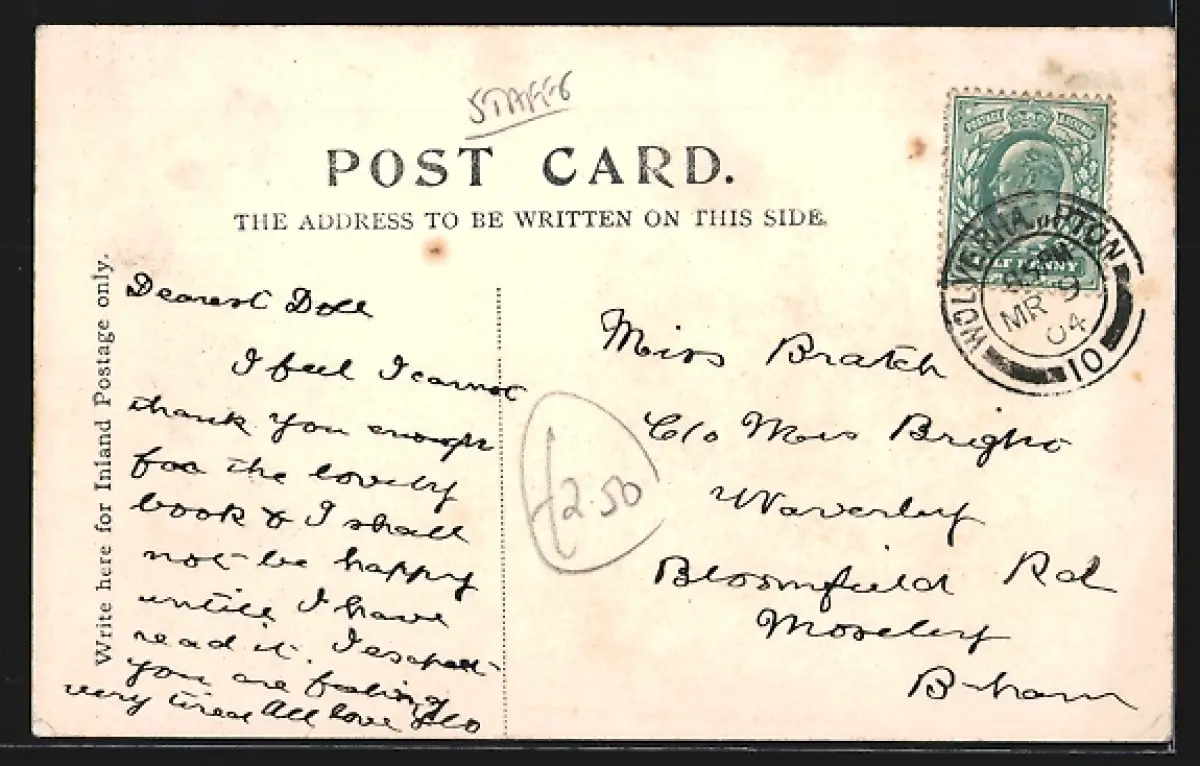 STAFFS
POST CARD.
THE ADDRESS TO BE WRITTEN ON THIS SIDE.
Write here for Inland Postage only.
Dearest Doll
I feel I cannot
thank you enough
for the lovely
book & I shall
not be happy
untill I have
read it. I expect
you are feeling
very tired All love Flo
Miss Bratch
C/o Miss Bright
Waverley
Bloomfield Rd
Moseley
B-ham
£2.50
HALF PENNY
WOLVERHAMPTON
MR 9
04
10